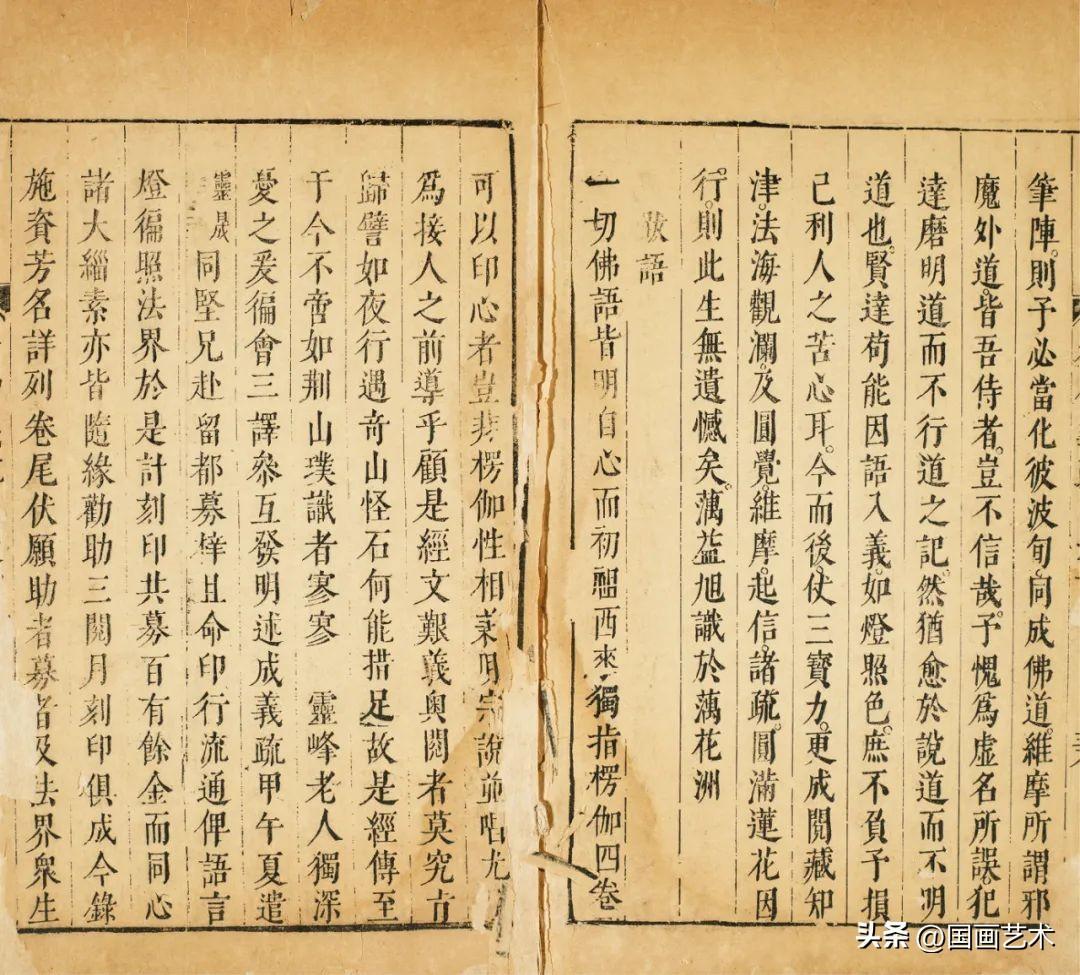 筆陣。則予必當化彼波旬。同成佛道。維摩所謂邪
魔外道。皆吾侍者。豈不信哉。予愧爲虛名所誤。犯
達磨明道而不行道之記。然猶愈於說道而不明
道也。賢達苟能因語入義。如燈照色。庶不負予損
己利人之苦心耳。今而後。仗三寶力。更成閱藏知
津。法海觀瀾。及圓覺。維摩。起信。諸疏。圓滿蓮花因
行。則此生無遺憾矣。蕅益旭識於蕅花洲
跋語
一切佛語皆明自心而初祖西來獨指楞伽四卷
可以印心者豈非楞伽性相兼明宗說並暢尤
爲接人之前導乎顧是經文艱義奧閱者莫究
歸譬如夜行遇奇山怪石何能措足故是經傳至
于今不啻如荆山璞識者寥寥 靈峰老人獨深
憂之爰徧會三譯叅互發明述成義疏甲午夏遣
靈晟同堅兄赴留都募梓且命印行流通俾語言
燈徧照法界於是計刻印共募百有餘金而同心
諸大緇素亦皆隨緣勸助三閱月刻印俱成今錄
施資芳名詳列卷尾伏願助者募者及法界衆生
头条 @国画艺术